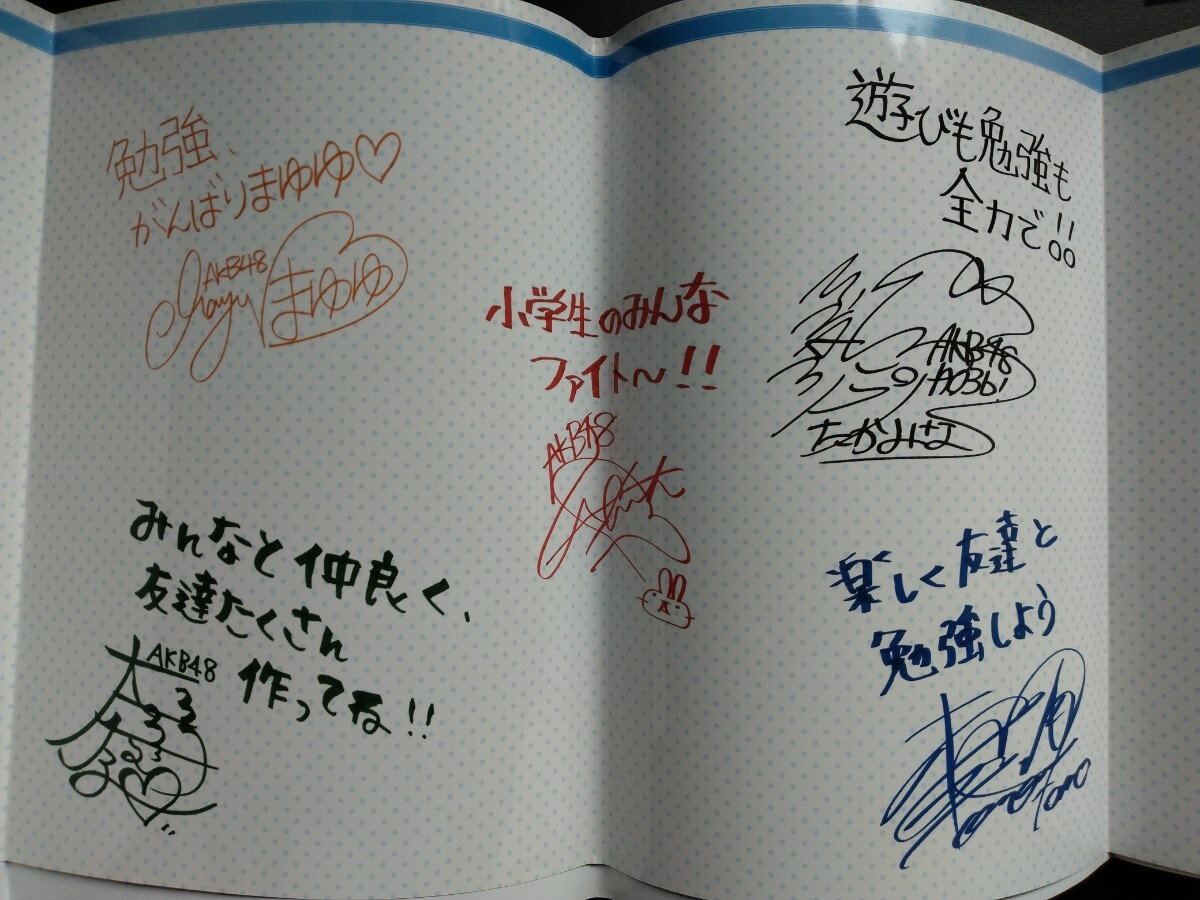 勉強、
がんばりまゆゆ♡
AKB48
Mayu
まゆゆ
遊びも勉強も
全力で!!
AKB48
たかみな
小学生のみんな
ファイト〜!!
AKB48
みんなと仲良く、
友達たくさん
作ってね!!
AKB48
楽しく友達と
勉強しよう